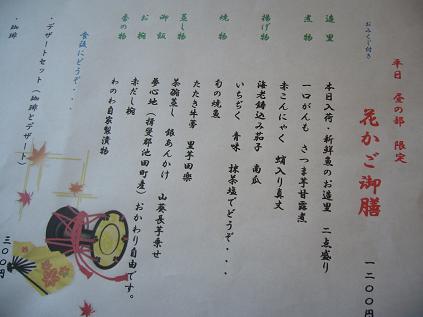 おみくじ付き
平日 昼の部 限定
花かご御膳
一二〇〇円
造里 本日入荷・新鮮魚のお造里 二点盛り
煮物 一口がんも さつま芋甘露煮
赤こんにゃく 蛸入り真丈
揚げ物 海老鋳込み茄子 南瓜
いちぢく 青味 抹茶塩でどうぞ・・・
焼物 旬の焼魚
たたき牛蒡 里芋田楽
蒸し物 茶碗蒸し 銀あんかけ 山葵長芋乗せ
御飯 夢心地(揖斐郡池田町産)おかわり自由です。
お椀 赤だし椀
香の物 わのわ自家製漬物
食後にどうぞ・・・
・デザートセット(珈琲とデザート)
三〇〇円
・珈琲